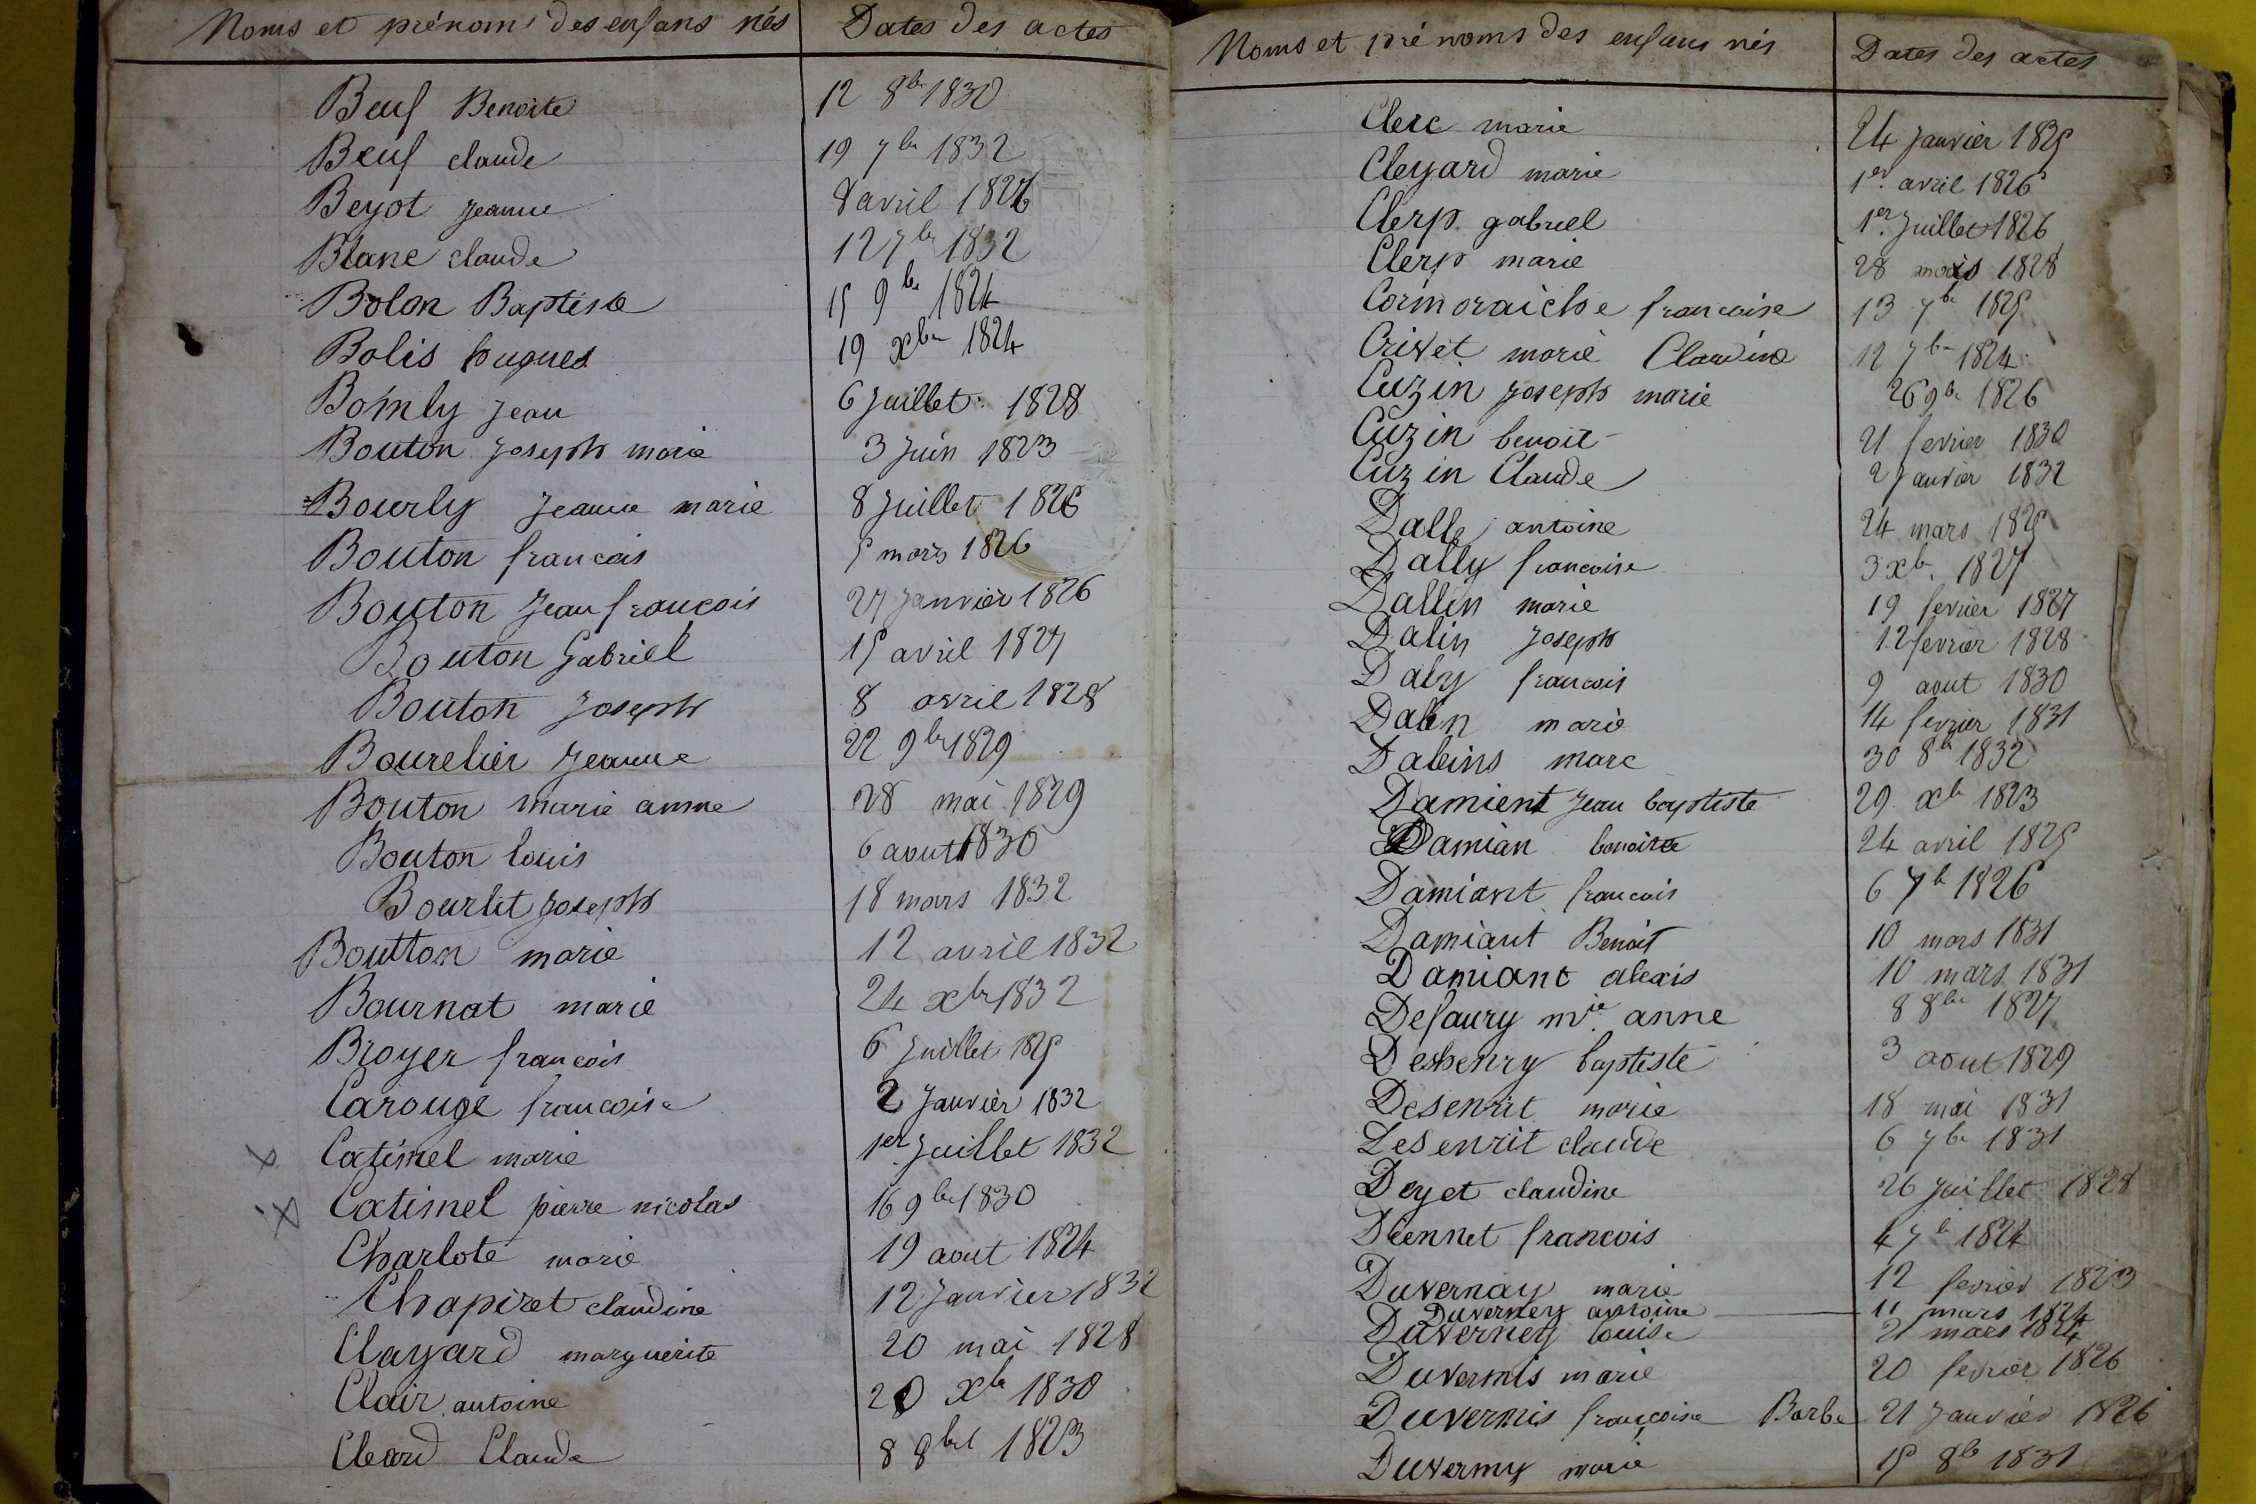 Noms et prénoms des enfans nés Dates des actes
Beuf Benoite 12 8bre 1830
Beuf claude 19 7bre 1832
Beyot jeanne 8 avril 1826
Blanc claude 12 7bre 1832
Bolon Baptiste 15 9bre 1824
Bolis hugues 19 xbre 1824
Bomly jean 6 juillet 1828
Bouton joseph marie 3 juin 1823
Bourly jeanne marie 8 juillet 1826
Bouton francois 5 mars 1826
Bouton jean francois 27 janvier 1826
Bouton Gabriel 15 avril 1827
Bouton joseph 8 avril 1828
Bourelier jeanne 22 9bre 1829
Bouton marie anne 28 mai 1829
Bouton louis 6 aout 1830
Bourlit joseph 18 mars 1832
Boutton marie 12 avril 1832
Bournat marie 24 xbre 1832
Broyer francois 6 juillet 1825
Carouge francoise 2 janvier 1832
x Catimel marie 1er juillet 1832
x Catimel pierre nicolas 16 9bre 1830
Charlote marie 19 aout 1824
Chapiret claudine 12 janvier 1832
Clayard marguerite 20 mai 1828
Clair antoine 20 xbre 1830
Cleard Claude 8 8bre 1823
Noms et prénoms des enfans nés Dates des actes
Clerc marie 24 janvier 1825
Cleyard marie 1er avril 1826
Clerp gabriel 1er juillet 1826
Clerp marie 28 mars 1828
Cormoraiche francoise 13 7bre 1825
Crivet marie Claudine 12 7bre 1824
Cuzin joseph marie 26 9bre 1826
Cuzin benoit 21 fevrier 1830
Cuzin Claude 2 janvier 1832
Dally antoine 24 mars 1825
Dally francoise 3 xbre 1827
Dallin marie 19 fevrier 1827
Dalin joseph 12 fevrier 1828
Daly francois 9 aout 1830
Dalin marie 14 fevrier 1831
Daleins marc 30 8bre 1832
Damient jean baptiste 29 xbre 1823
Damian benoite 24 avril 1825
Damiant francois 6 7bre 1826
Damiant Benoit 10 mars 1831
Damiant alexis 10 mars 1831
Defaury mie anne 8 8bre 1827
Deshenry baptiste 3 aout 1829
Desenrit marie 18 mai 1831
Desenrit claude 6 7bre 1831
Deyet claudine 26 juillet 1828
Diennet francois 4 7bre 1824
Duvernay marie 12 fevrier 1823
Duverney antoine 11 mars 1824
Duverney louise 21 mars 1824
Duvernis marie 20 fevrier 1826
Duvernis francoise Barbe 21 janvier 1826
Duverny marie 15 8bre 1831